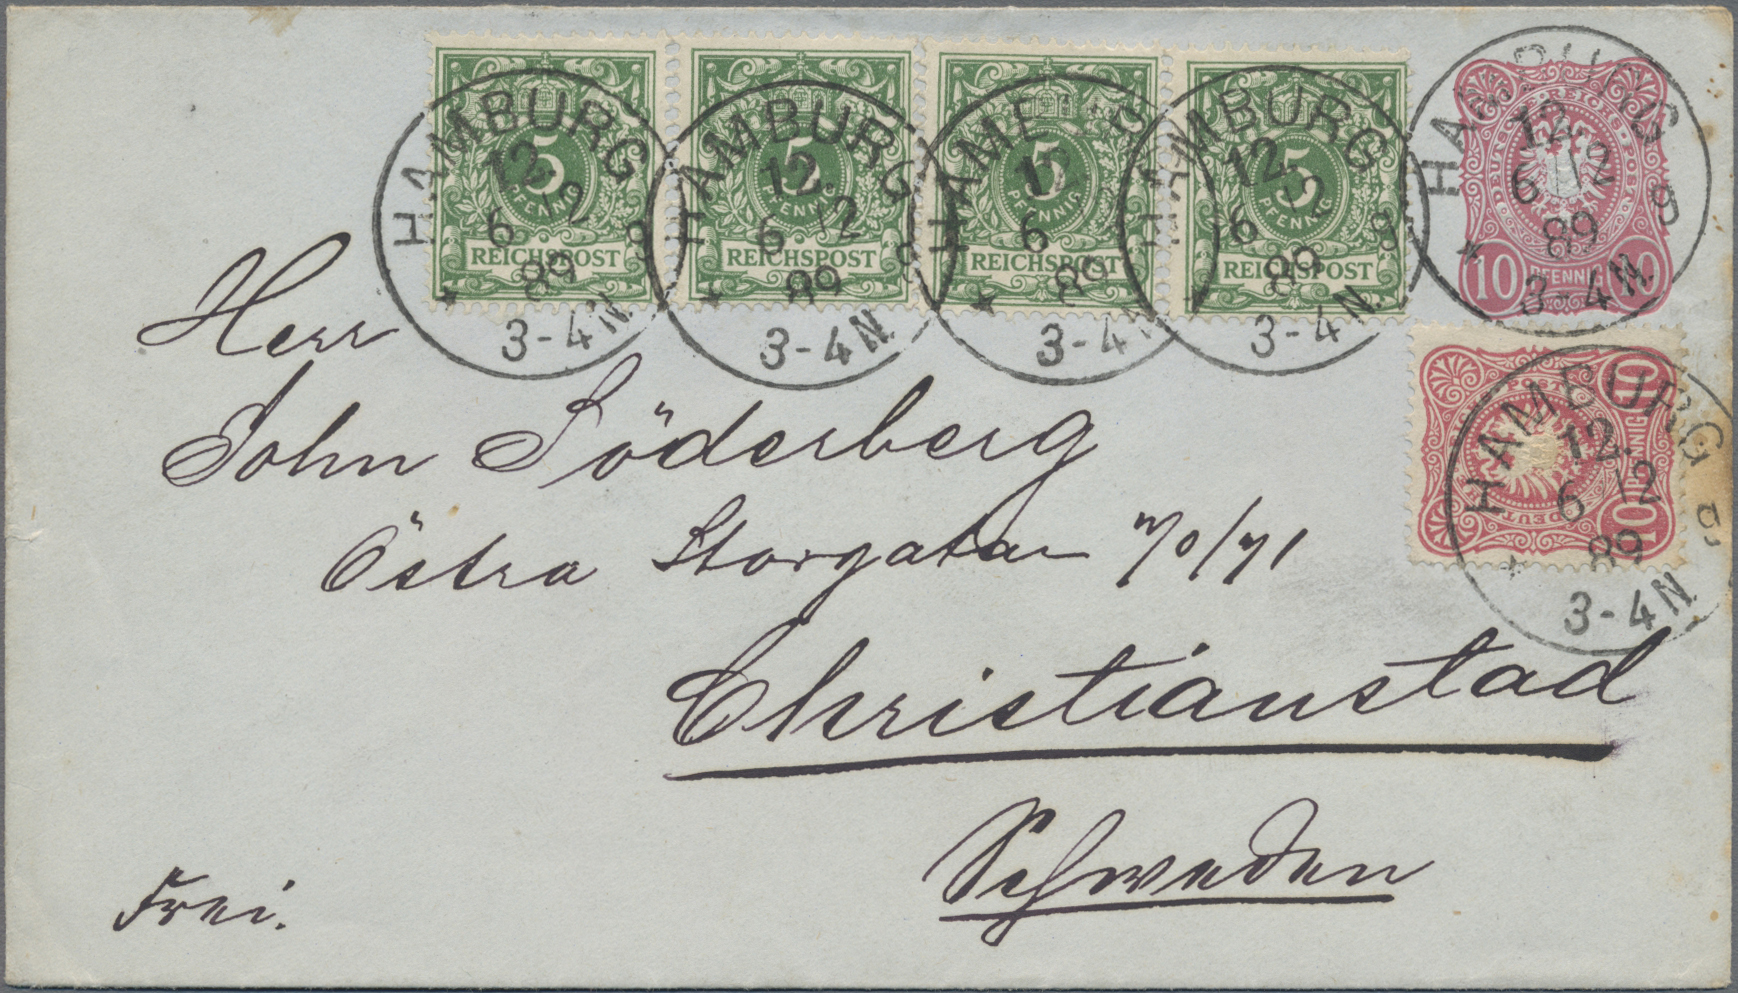 HAMBURG 12. 6 12 89 3-4 N. 9
5 PFENNIG REICHSPOST
HAMBURG 12. 6 12 89 3-4 N. 9
5 PFENNIG REICHSPOST
HAMBURG 12 6 89 3-4 N
5 PFENNIG REICHSPOST
HAMBURG 12. 6 12 89 3-4 N. 9
5 PFENNIG REICHSPOST
HAMBURG 12. 6 12 89 3-4 N. 9
DEUTSCHE REICHS-POST
10 PFENNIG 10
HAMBURG 12. 6 12 89 3-4 N. 9
DEUTSCHE REICHS-POST
10 PFENNIG 10
Herr
John Söderberg
Östra Storgatan 70/71
Christianstad
Schweden
Frei.